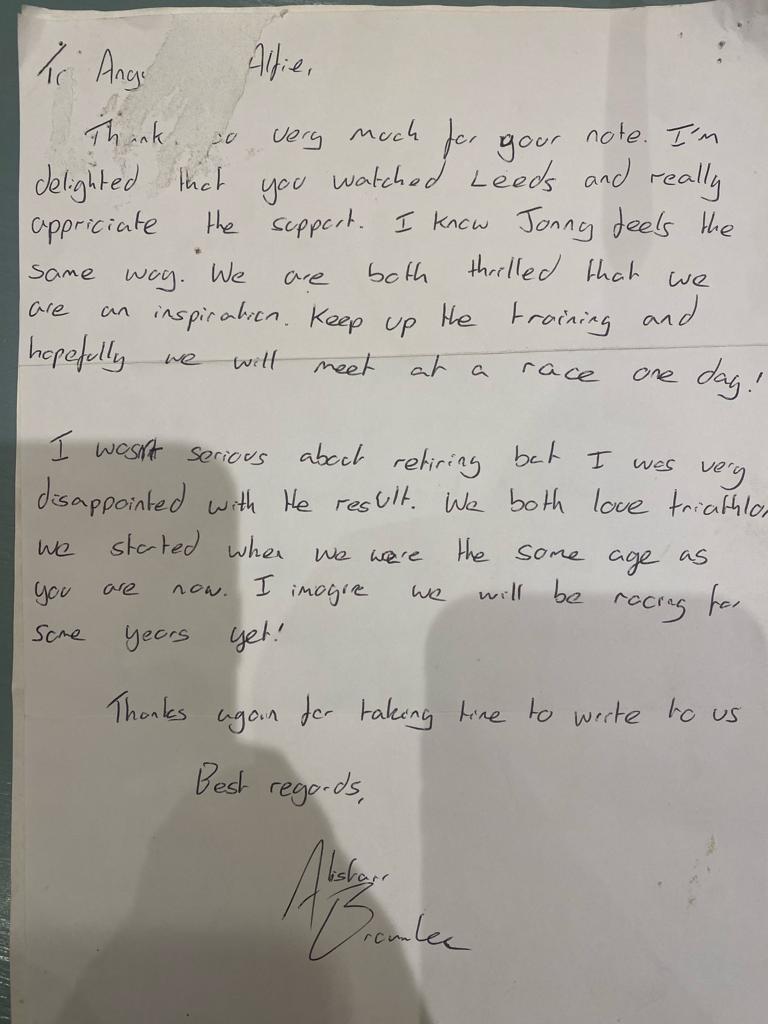 To Ang Alfie,
Thank so very much for your note. I'm
delighted that you watched Leeds and really
appriciate the support. I know Jonny feels the
same way. We are both thrilled that we
are an inspiration. Keep up the training and
hopefully we will meet at a race one day!
I wasn't serious about retiring but I was very
disappointed with the result. We both love triathlon
we started when we were the same age as
you are now. I imagine we will be racing for
some years yet!
Thanks again for taking time to write to us
Best regards,
Alistair
Brownlee